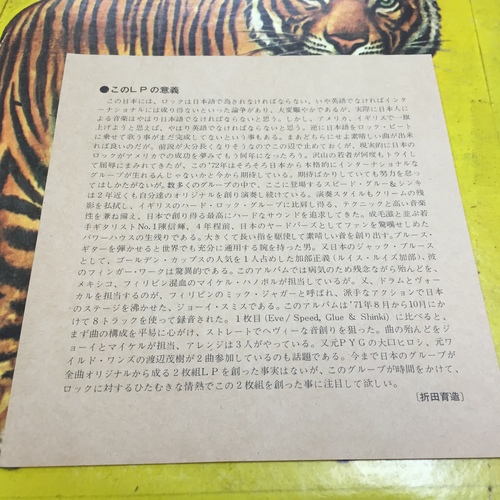 ●このLPの意義
この日本には、ロックは日本語で為されなければならない、いや英語でなければインター
ナショナルには成り得ないといった論争があり、大変賑やかであるが、実際に日本人に
よる音楽はやはり日本語でなければならないと思う。しかし、アメリカ、イギリスで一旗
上げようと思えば、やはり英語でなければならないと思う。逆に日本語をロック・ビート
に乗せて歌う事がまだ完成してないという事もある。まあどちらにせよ素晴しい曲が出来
れば良いのだが。前説が大分長くなりそうなのでこの辺で止めておくが、現実的に日本の
ロックがアメリカでの成功を夢みてもう何年になっだろう。沢山の若者が何度もトライし
て屈辱にまみれてきたが、この'72年はそろそろ日本から本格的にインターナショナルな
グループが生れるんじゃないかと今から期待している。期待ばかりしていても努力を怠っ
てはしかたがないが、数多くのグループの中で、ここに登場するスピード・グルー&シンキ
は2年近くも自分達のオリジナルを創り演奏し続けている。演奏スタイルもクリームの残
影を払拭し、イギリスのハード・ロック・グループに比肩し得る、テクニックと高い音楽
性を兼ね備え、日本で創り得る最高にハードなサウンドを追求してきた。成毛滋と並ぶ若
手ギタリストNo.1陳信輝、4年程前、日本のヤードバーズとしてファンを驚嘆せしめた
パワーハウスの生残りである。大きくて長い指を駆使して素晴しい音を創り出す。ブルース・
ギターを弾かせると世界でも充分に通用する腕を持った男。又日本のジャック・ブルース
として、ゴールデン・カップスの人気を1人占めした加部正義(ルイス・ルイズ加部)、彼
のフィンガー・ワークは驚異的である。このアルバムでは病気のため残念ながら殆んどを、
メキシコ、フィリピン混血のマイケル・ハノポルが担当している。又、ドラムとヴォー
カルを担当するのが、フィリピンのミック・ジャガーと呼ばれ、派手なアクションで日本
のステージを沸かせた、ジョーイ・スミスである。このアルバムは'71年8月から10月にか
けて8トラックを使って録音された。1枚目(Eve/Speed, Glue & Shinki)に比べると、
まず曲の構成を平易に心がけ、ストレートでヘヴィーな音創りを狙った。曲の殆んどをジ
ョーイとマイケルが担当、アレンジは3人がやっている。又元PYGの大口ヒロシ、元ワ
イルド・ワンズの渡辺茂樹が2曲参加しているのも話題である。今まで日本のグループが
全曲オリジナルから成る2枚組LPを創った事実はないが、このグループが時間をかけて、
ロックに対するひたむきな情熱でこの2枚組を創った事に注目して欲しい。
〔折田育造〕